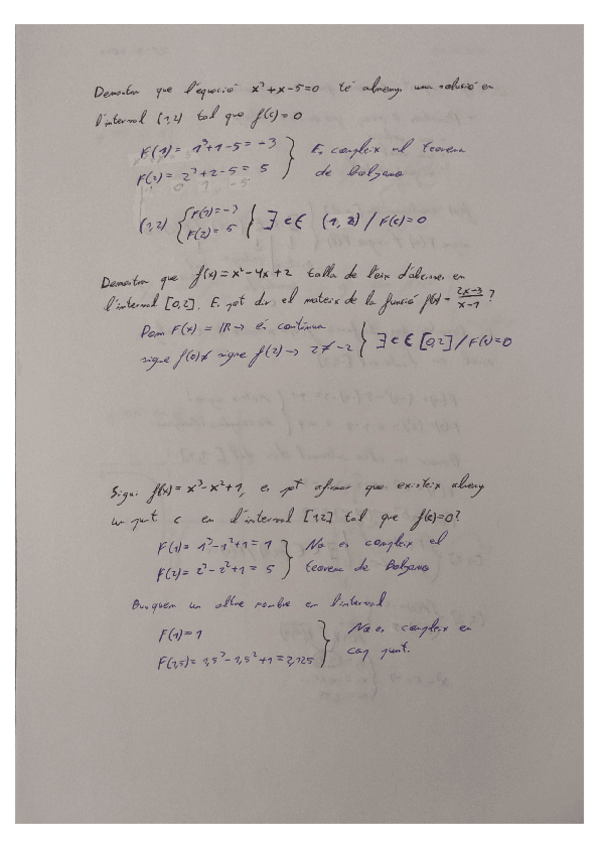 Demostra que l'equació x³+x-5=0 té almenys una solució en
l'interval (1,2) tal que f(c)=0
F(1) = 1³+1-5 = -3
F(2) = 2³+2-5 = 5
Es compleix el teorema
de Bolzano
(1,2) { F(1)=-3 F(2)=5 } ∃ c ∈ (1,2) / F(c)=0
Demostra que f(x)=x²-4x+2 talla de l'eix d'abscisses en
l'interval [0,2]. Es pot dir el mateix de la funció f(x) = 2x-3/x-1?
Dom F(x) = IR → és contínua
signe f(0) ≠ signe f(2) → 2 ≠ -2 } ∃ c ∈ [0,2] / F(c)=0
Sigui f(x) = x³-x²+1, es pot afirmar que existeix almenys
un punt c en l'interval [1,2] tal que f(c)=0?
F(1) = 1³-1²+1 = 1
F(2) = 2³-2²+1 = 5
No es compleix el
teorema de Bolzano
Busquem un altre nombre en l'interval
F(1)=1
F(1,5) = 1,5³-1,5²+1 = 2,125
No es compleix en
cap punt.